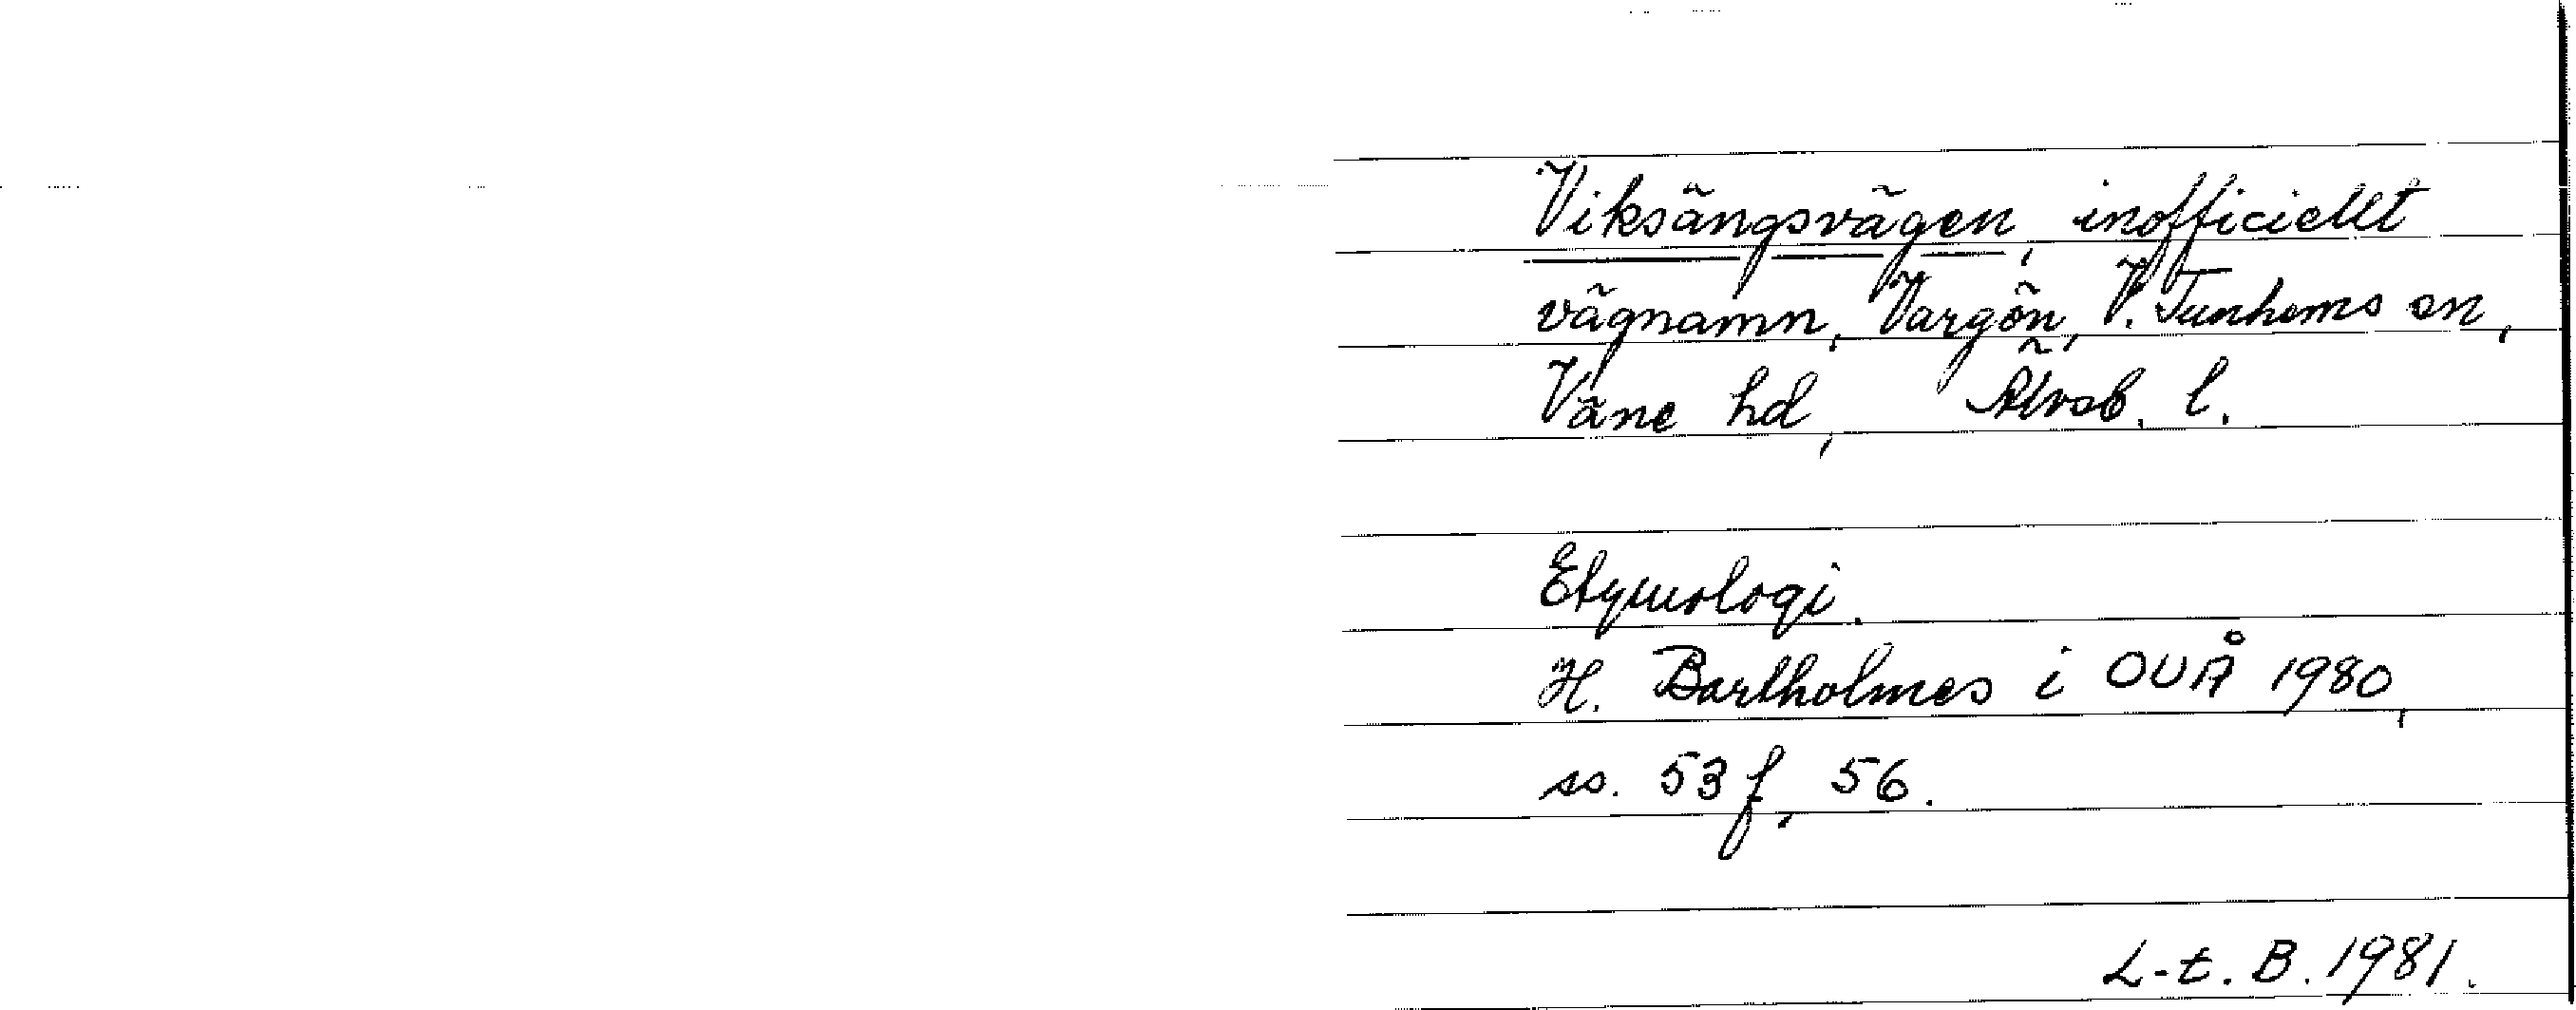 Viksängsvägen, inofficiellt
vägnamn, Vargön, V. Tunhems sn,
Väne hd, Älvsb. l.
Etymologi.
H. Bartholmes i OUÅ 1980,
ss. 53 f, 56.
L-t. B. 1981.